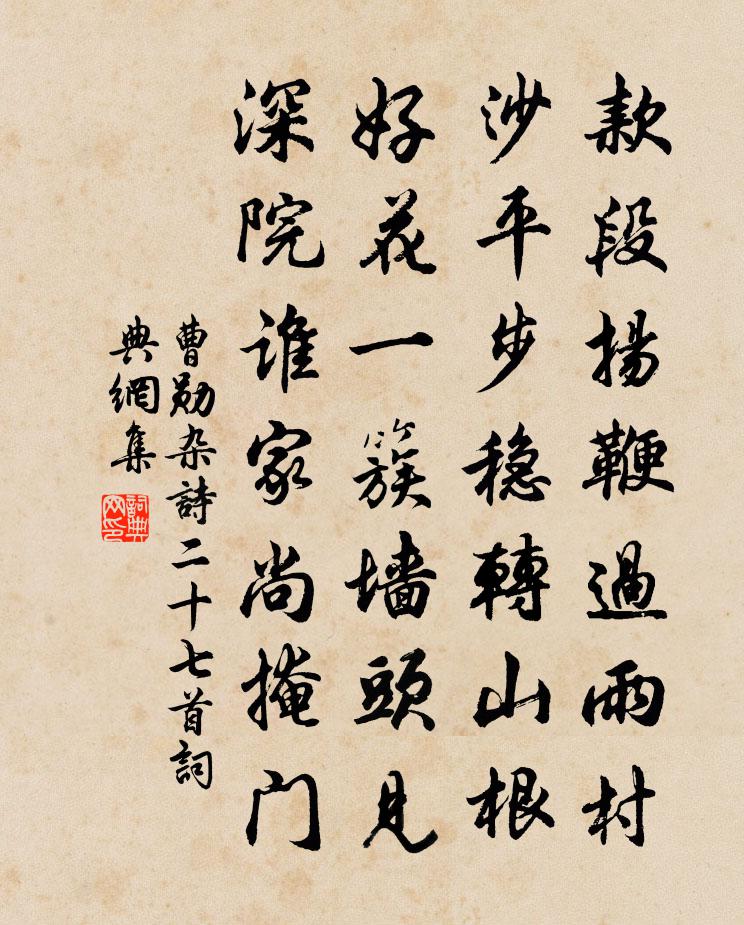 款段揚鞭過兩村
沙平步稳轉山根
好花一簇墙頭見
深院誰家尚掩门
曹勋杂詩二十七首詞
典網集
詞典
网印